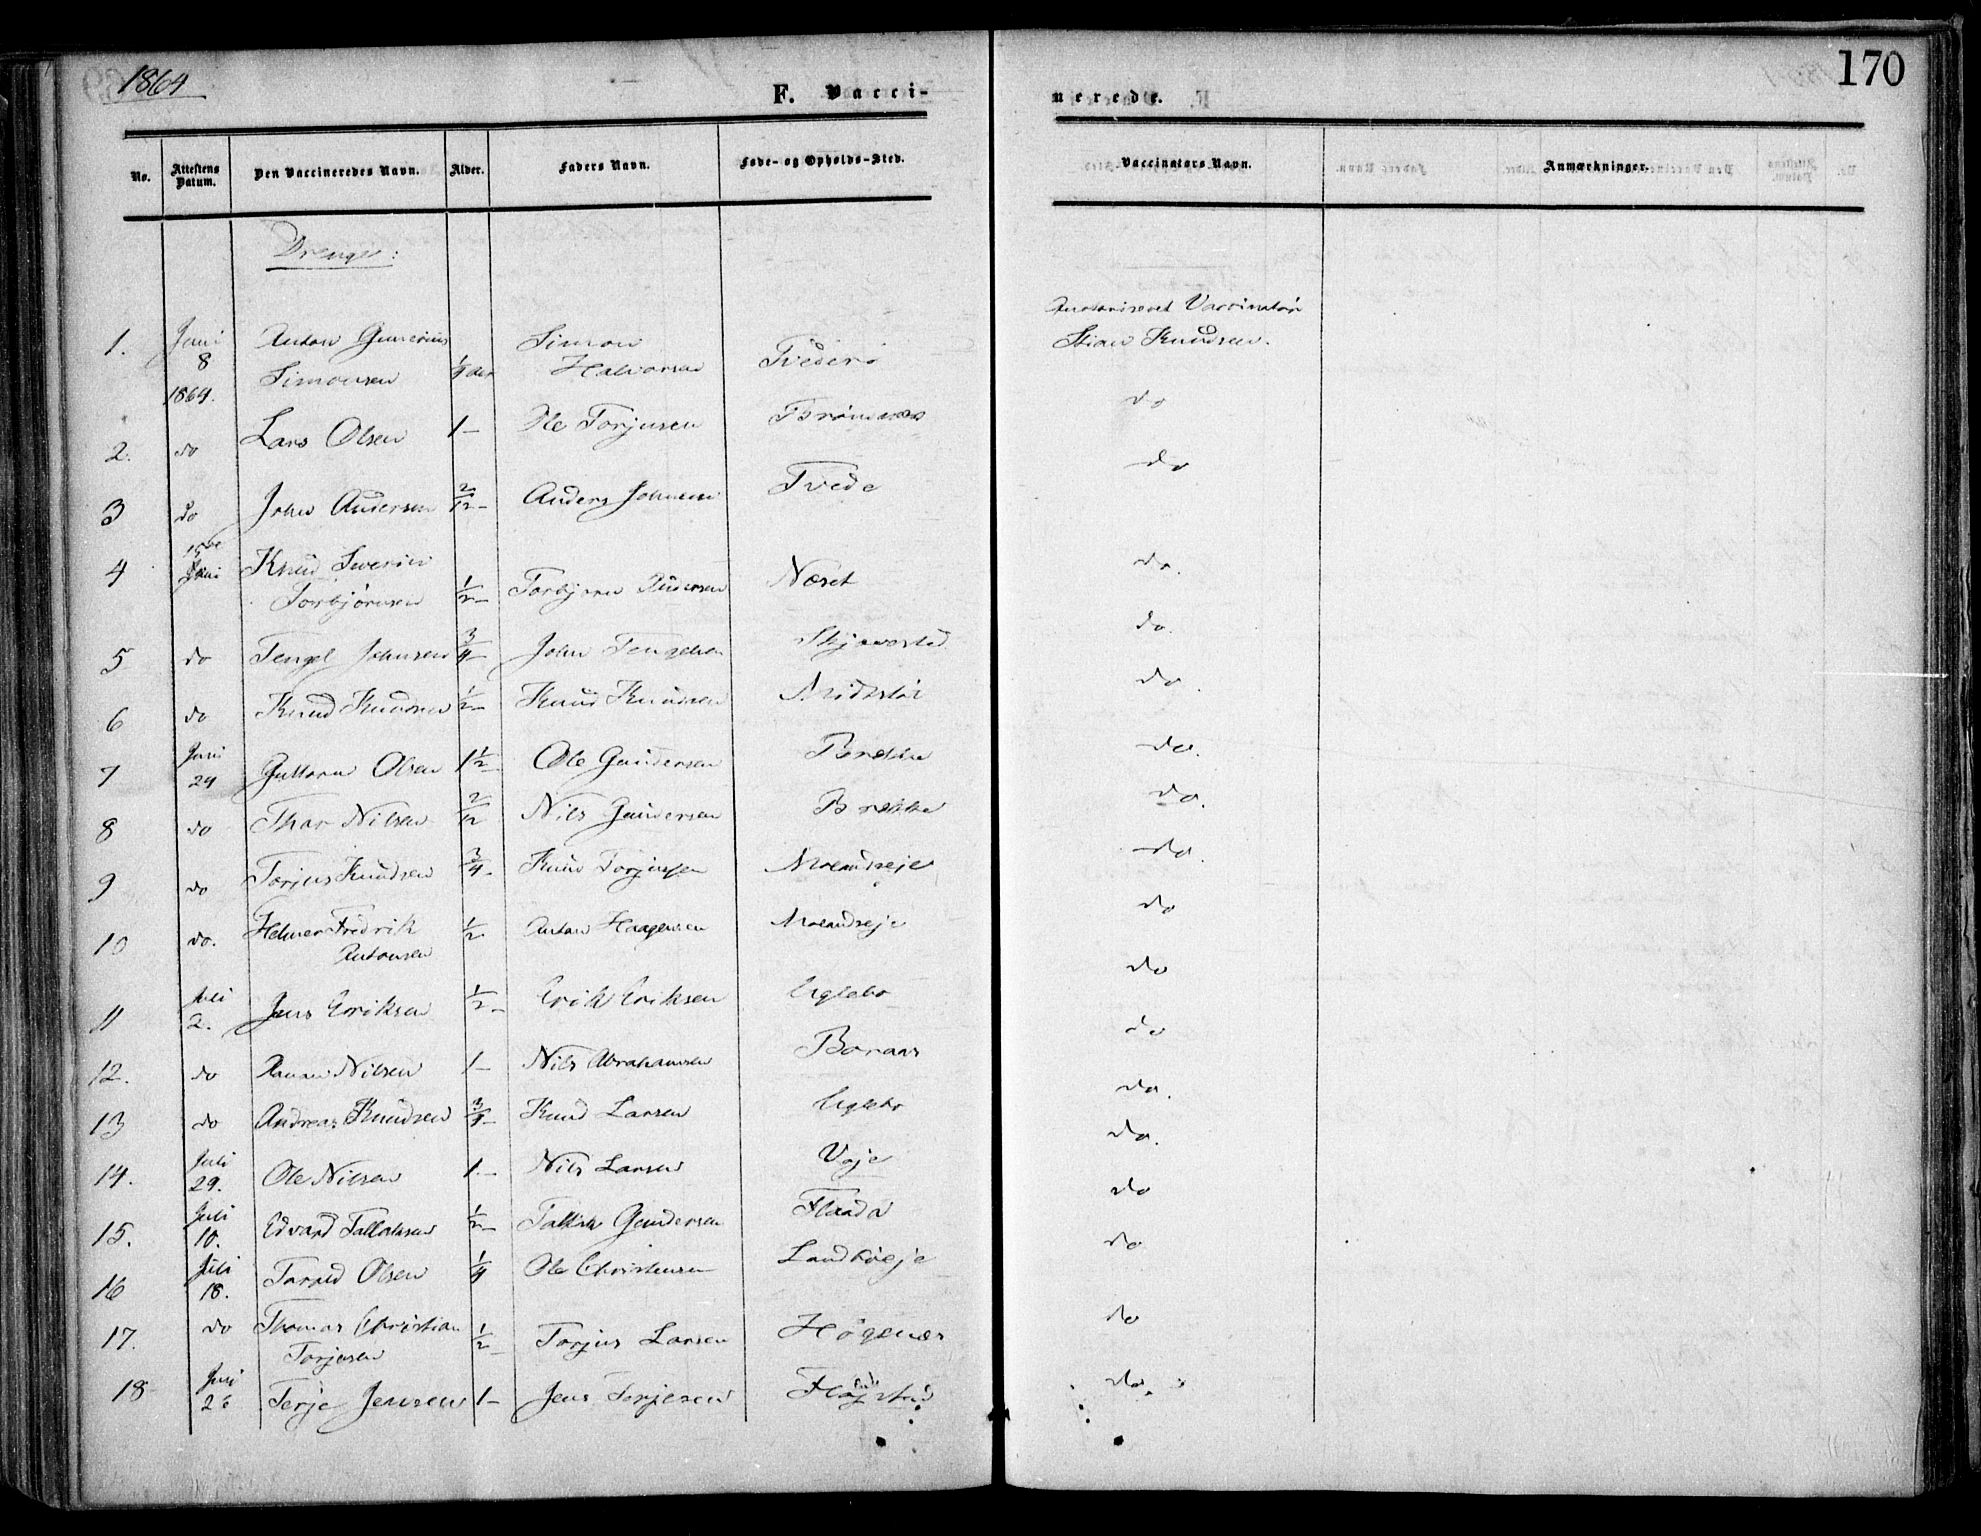 1864
170
F. Vacci-
nerede.
No. Attestens Datum. Den Vaccineredes Navn. Alder. Faders Navn. Føde- og Opholds-Sted. Vaccinators Navn. Anmærkninger.
Drenge:
1. Juni 8 1864. Anton Gunerius Simonsen 1/4 Simon Halvorsen Tvederø Vaccinatør Stian Knudsen.
2. do Lars Olsen 1 — Ole Torjusen do
3 do John Andersen 2/12 — Anders Johnsen Tvede do
4 15de Juni Knud Severin Torbjørnsen 1/2 — Torbjørn Andersen Næset do.
5 do Tengel Johnsen 3/4 — John Tengelsen do.
6 do Knud Knudsen 1/2 — Knud Knudsen do.
7 Juni 24 Guttorm Olsen 1 1/2 — Ole Gundersen Brække do.
8 do Thor Nilsen 2/12 Nils Gundersen Brække do.
9 do Torjus Knudsen 3/4 — Knud Torjusen Molandseje do.
10 do. Helmer Fredrik Antonsen 1/2 Anton Haagensen Molandseje do
11 Juli 2. Jens Eriksen 1/2 — Erik Eriksen Uglebo do
12. do Nilsen 1 — Nils Abrahamsen Boraas do
13 do Andreas Knudsen 3/4 — Knud Larsen Uglebo do.
14. Juli 29. Ole Nilsen 1. — Nils Larsen Veje do.
15. Juli 10. Edvard Tallaksen 1/2 — Tallak Gundersen Flaada do
16 Juli 18. Tarald Olsen 1/4 Ole Christensen do
17. do Thomas Christian Torjusen 1/2 — Torjus Larsen Høgenæs do
18 Juni 26 Terje Jensen 1 — Jens Terjesen do.